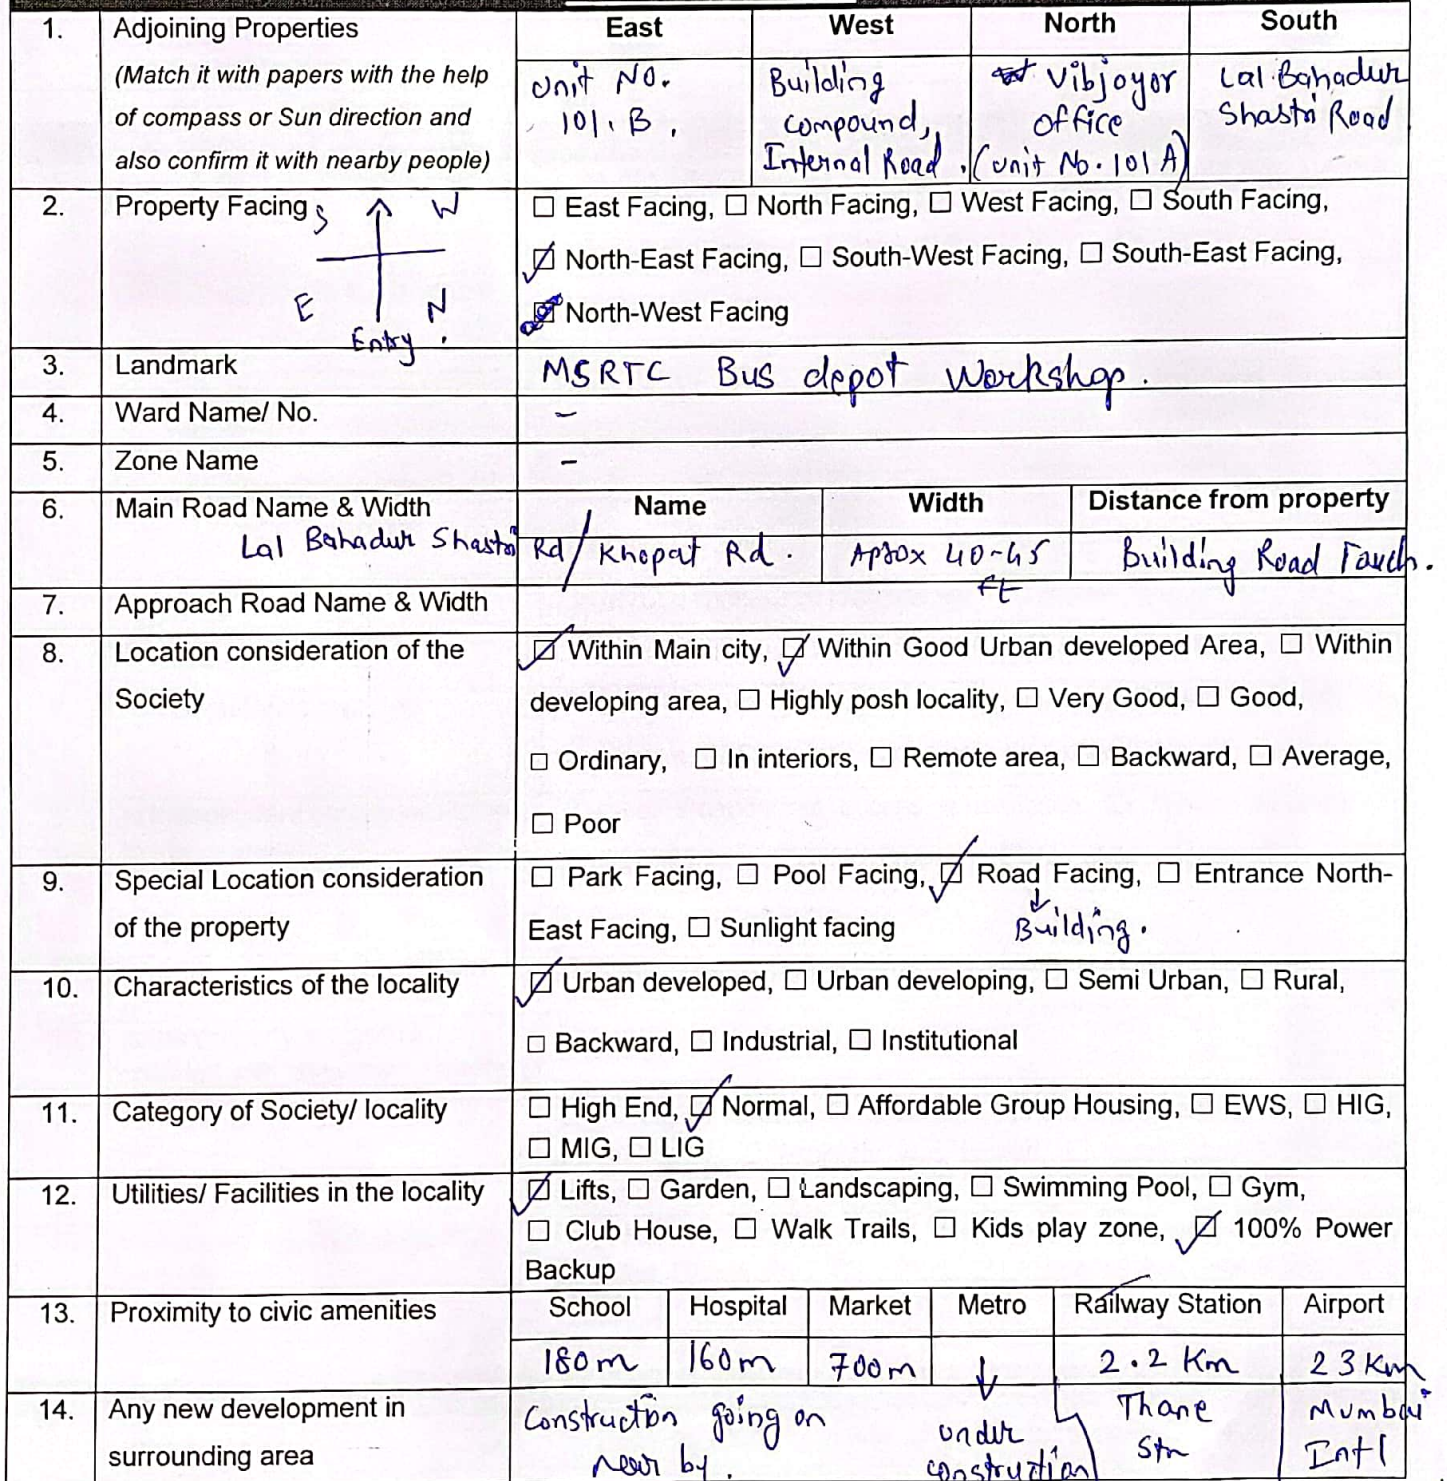 1. Adjoining Properties East West North South
(Match it with papers with the help
of compass or Sun direction and
also confirm it with nearby people)
Unit No.
101.B.
Building
compound,
Internal Road.
Vibjoyor
office
(unit No. 101 A)
Lal Bahadur
Shastri Road
2. Property Facing
S W
E N
Entry.
☐ East Facing, ☐ North Facing, ☐ West Facing, ☐ South Facing,
☑ North-East Facing, ☐ South-West Facing, ☐ South-East Facing,
☐ North-West Facing
3. Landmark MSRTC Bus depot Workshop.
4. Ward Name/ No. -
5. Zone Name -
6. Main Road Name & Width Name Width Distance from property
Lal Bahadur Shastri Rd / Khopat Rd. Aprox 40-45 Building Road Touch.
ft
7. Approach Road Name & Width
8. Location consideration of the
Society
☑ Within Main city, ☑ Within Good Urban developed Area, ☐ Within
developing area, ☐ Highly posh locality, ☐ Very Good, ☐ Good,
☐ Ordinary, ☐ In interiors, ☐ Remote area, ☐ Backward, ☐ Average,
☐ Poor
9. Special Location consideration
of the property
☐ Park Facing, ☐ Pool Facing, ☑ Road Facing, ☐ Entrance North-
East Facing, ☐ Sunlight facing
↓
Building.
10. Characteristics of the locality
☑ Urban developed, ☐ Urban developing, ☐ Semi Urban, ☐ Rural,
☐ Backward, ☐ Industrial, ☐ Institutional
11. Category of Society/ locality
☐ High End, ☑ Normal, ☐ Affordable Group Housing, ☐ EWS, ☐ HIG,
☐ MIG, ☐ LIG
12. Utilities/ Facilities in the locality
☑ Lifts, ☐ Garden, ☐ Landscaping, ☐ Swimming Pool, ☐ Gym,
☐ Club House, ☐ Walk Trails, ☐ Kids play zone, ☑ 100% Power
Backup
13. Proximity to civic amenities School Hospital Market Metro Railway Station Airport
180m 160m 700m ↓ 2.2 Km 23 Km
14. Any new development in
surrounding area
Construction going on
near by.
under
construction
Thane
Stn
Mumbai
Intl